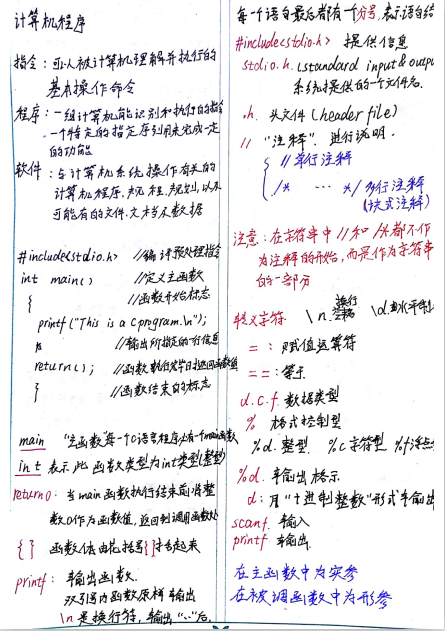 计算机程序
指令：可以被计算机理解并执行的
基本操作命令
程序：一组计算机能识别和执行的指令
一个特定的指定序列用来完成一定
的功能
软件：与计算机系统操作有关的
计算机程序、规程、规则，以及
可能有的文件、文档及数据
#include<stdio.h> //编译预处理指令
int main() //定义主函数
{ //函数开始标志
printf("This is a Cprogram.\n");
//输出所指定的一行信息
return(); //函数执行完毕时返回函数值
} //函数结束的标志
main "主函数"每一个C语言程序必有一个main函数
int 表示此函数类型为int类型(整型)
return0: 当main函数执行结束前将整
数0作为函数值，返回到调用函数处
{ } 函数体由花括号{}括起来
printf: 输出函数.
双引号内函数原样输出
\n 是换行符，输出"…"后,
每一个语句最后都有一个分号，表示语句结
#include<stdio.h> 提供信息
stdio.h. (standard input & outpu
系统提供的一个文件名.
.h. 头文件 (header file)
// "注释". 进行说明.
{ //单行注释
/* … */ 多行注释
(块式注释)
注意：在字符串中 // 和 /* 都不作
为注释的开始，而是作为字符串
的一部分
转义字符 \n. 换行 \d.
= : 赋值运算符
== : 等于
d.c.f. 数据类型
% 格式控制型
%d. 整型. %c 字符型 %f
%d. 输出格示
d: 用"十进制整数"形式输出
scanf. 输入
printf 输出.
在主函数中为实参
在被调函数中为形参